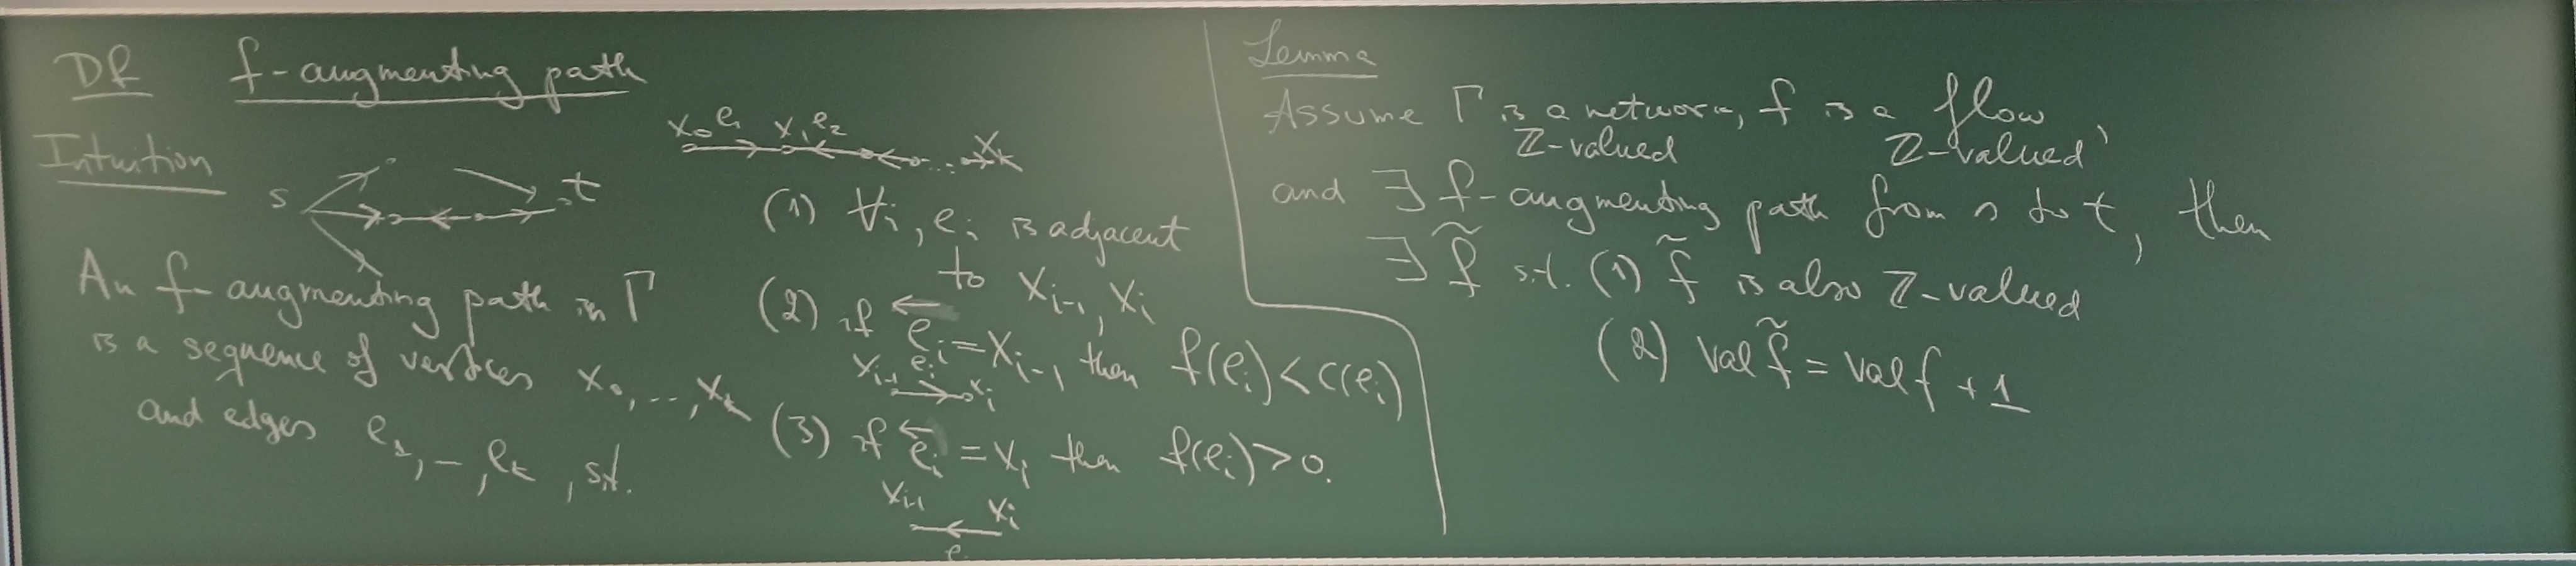 Df f-augmenting path
Intuition
s t
An f-augmenting path in Γ
is a sequence of vertices x₀,..,xₖ
and edges e₁,-,eₖ, s.t.
x₀ e₁ x₁ e₂ ... xₖ
(1) ∀i, eᵢ is adjacent
to xᵢ₋₁, xᵢ
(2) if ←eᵢ = xᵢ₋₁ then f(eᵢ) < c(eᵢ)
xᵢ₋₁ eᵢ xᵢ
(3) if ←eᵢ = xᵢ then f(eᵢ) > 0.
xᵢ₋₁ xᵢ
e
Lemma
Assume Γ is a network, f is a flow,
ℤ-valued ℤ-valued
and ∃ f-augmenting path from s to t, then
∃ f̃ s.t. (1) f̃ is also ℤ-valued
(2) val f̃ = val f + 1